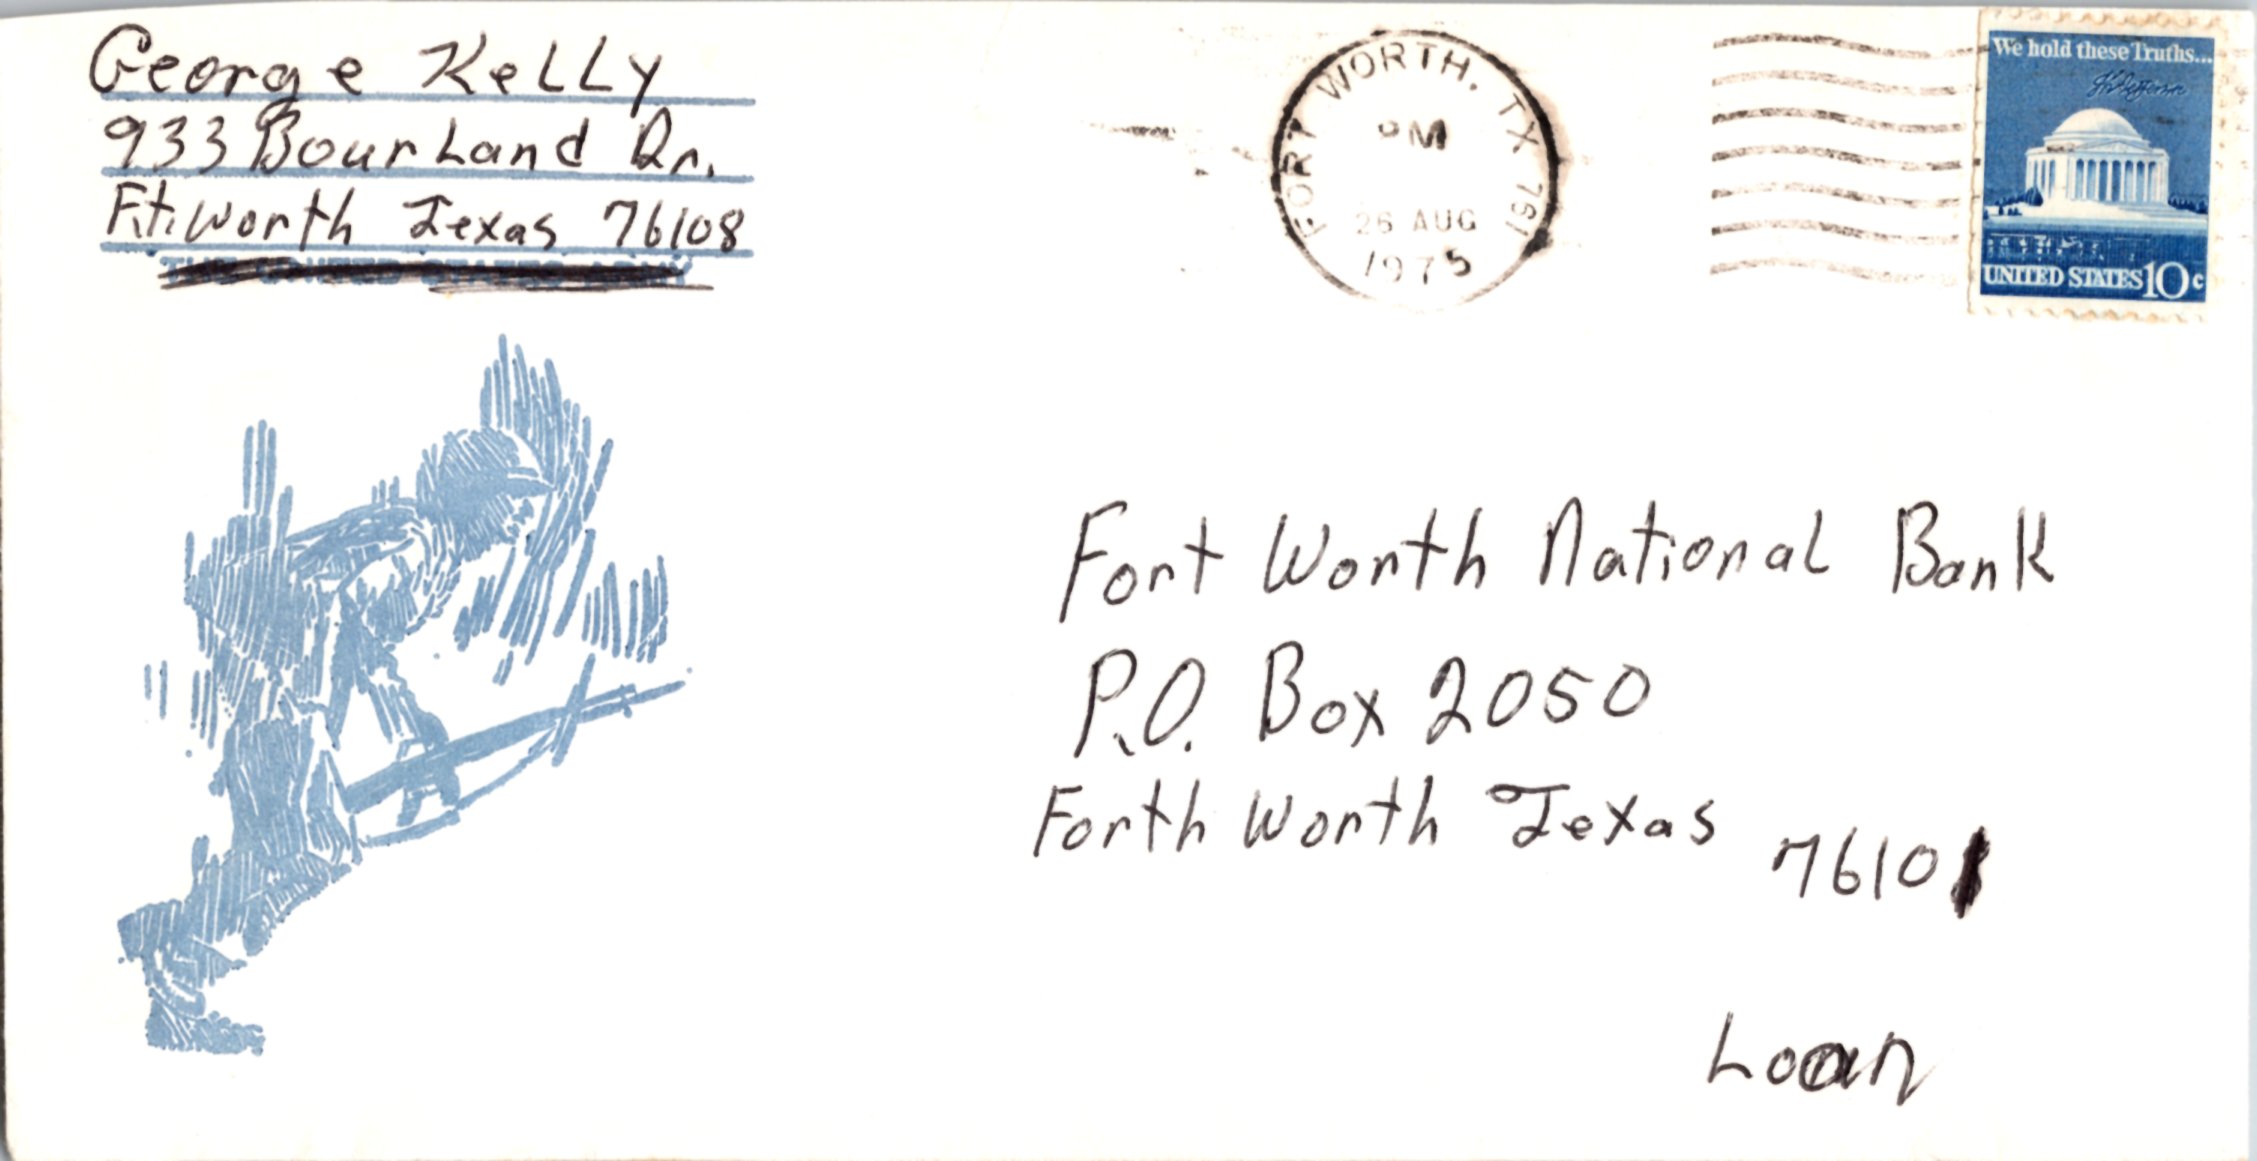 George Kelly
933 Bourland Dr.
Ft. Worth Texas 76108
THE UNITED STATES ARMY
FORT WORTH, TX 761
PM
26 AUG
1975
We hold these Truths...
UNITED STATES 10c
Fort Worth National Bank
P.O. Box 2050
Forth Worth Texas
76101
Loan